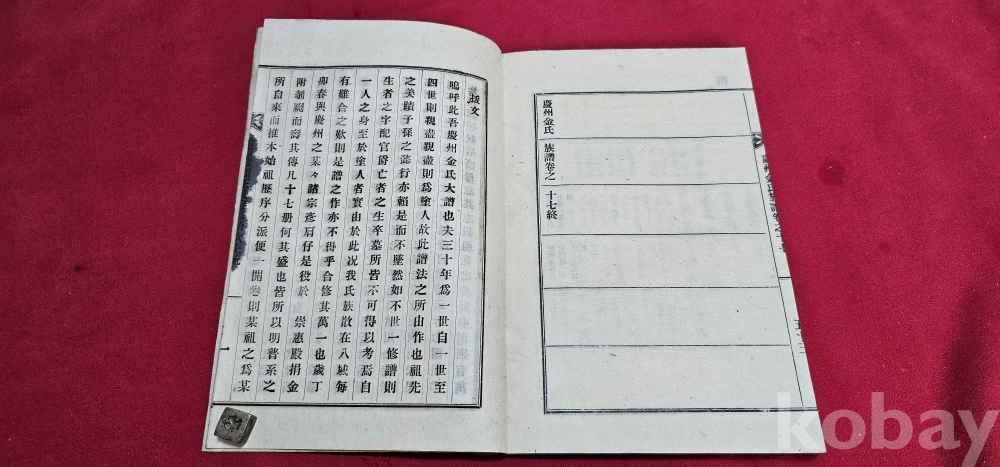 慶州金氏
族譜卷之
十七終
跋文
嗚呼此吾慶州金氏大譜也夫三十年爲一世自一世至
四世則親盡親盡則爲塗人故此譜法之所由作也祖先
之美蹟子孫之懿行亦賴是而不墜然如不世一修譜則
生者之字配官爵亡者之生卒墓所皆不可得以考焉自
一人之身至於塗人者實由於此况我氏族散在八域每
有難合之歎則是譜之作亦不得乎合修其萬一也歲丁
卯春與慶州之某々諸宗彦肩仔是役於崇惠殿捐金
附剞劂而壽其傳凡十七册何其盛也皆所以明普系之
所自來而推本始祖歷序分派便一開卷則某祖之爲某
一
kobay